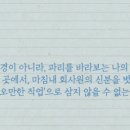 경이 아니라, 파리를 바라보는 나의
곳에서, 마침내 회사원의 신분을 벗
오만한 직업'으로 삼지 않을 수 없는